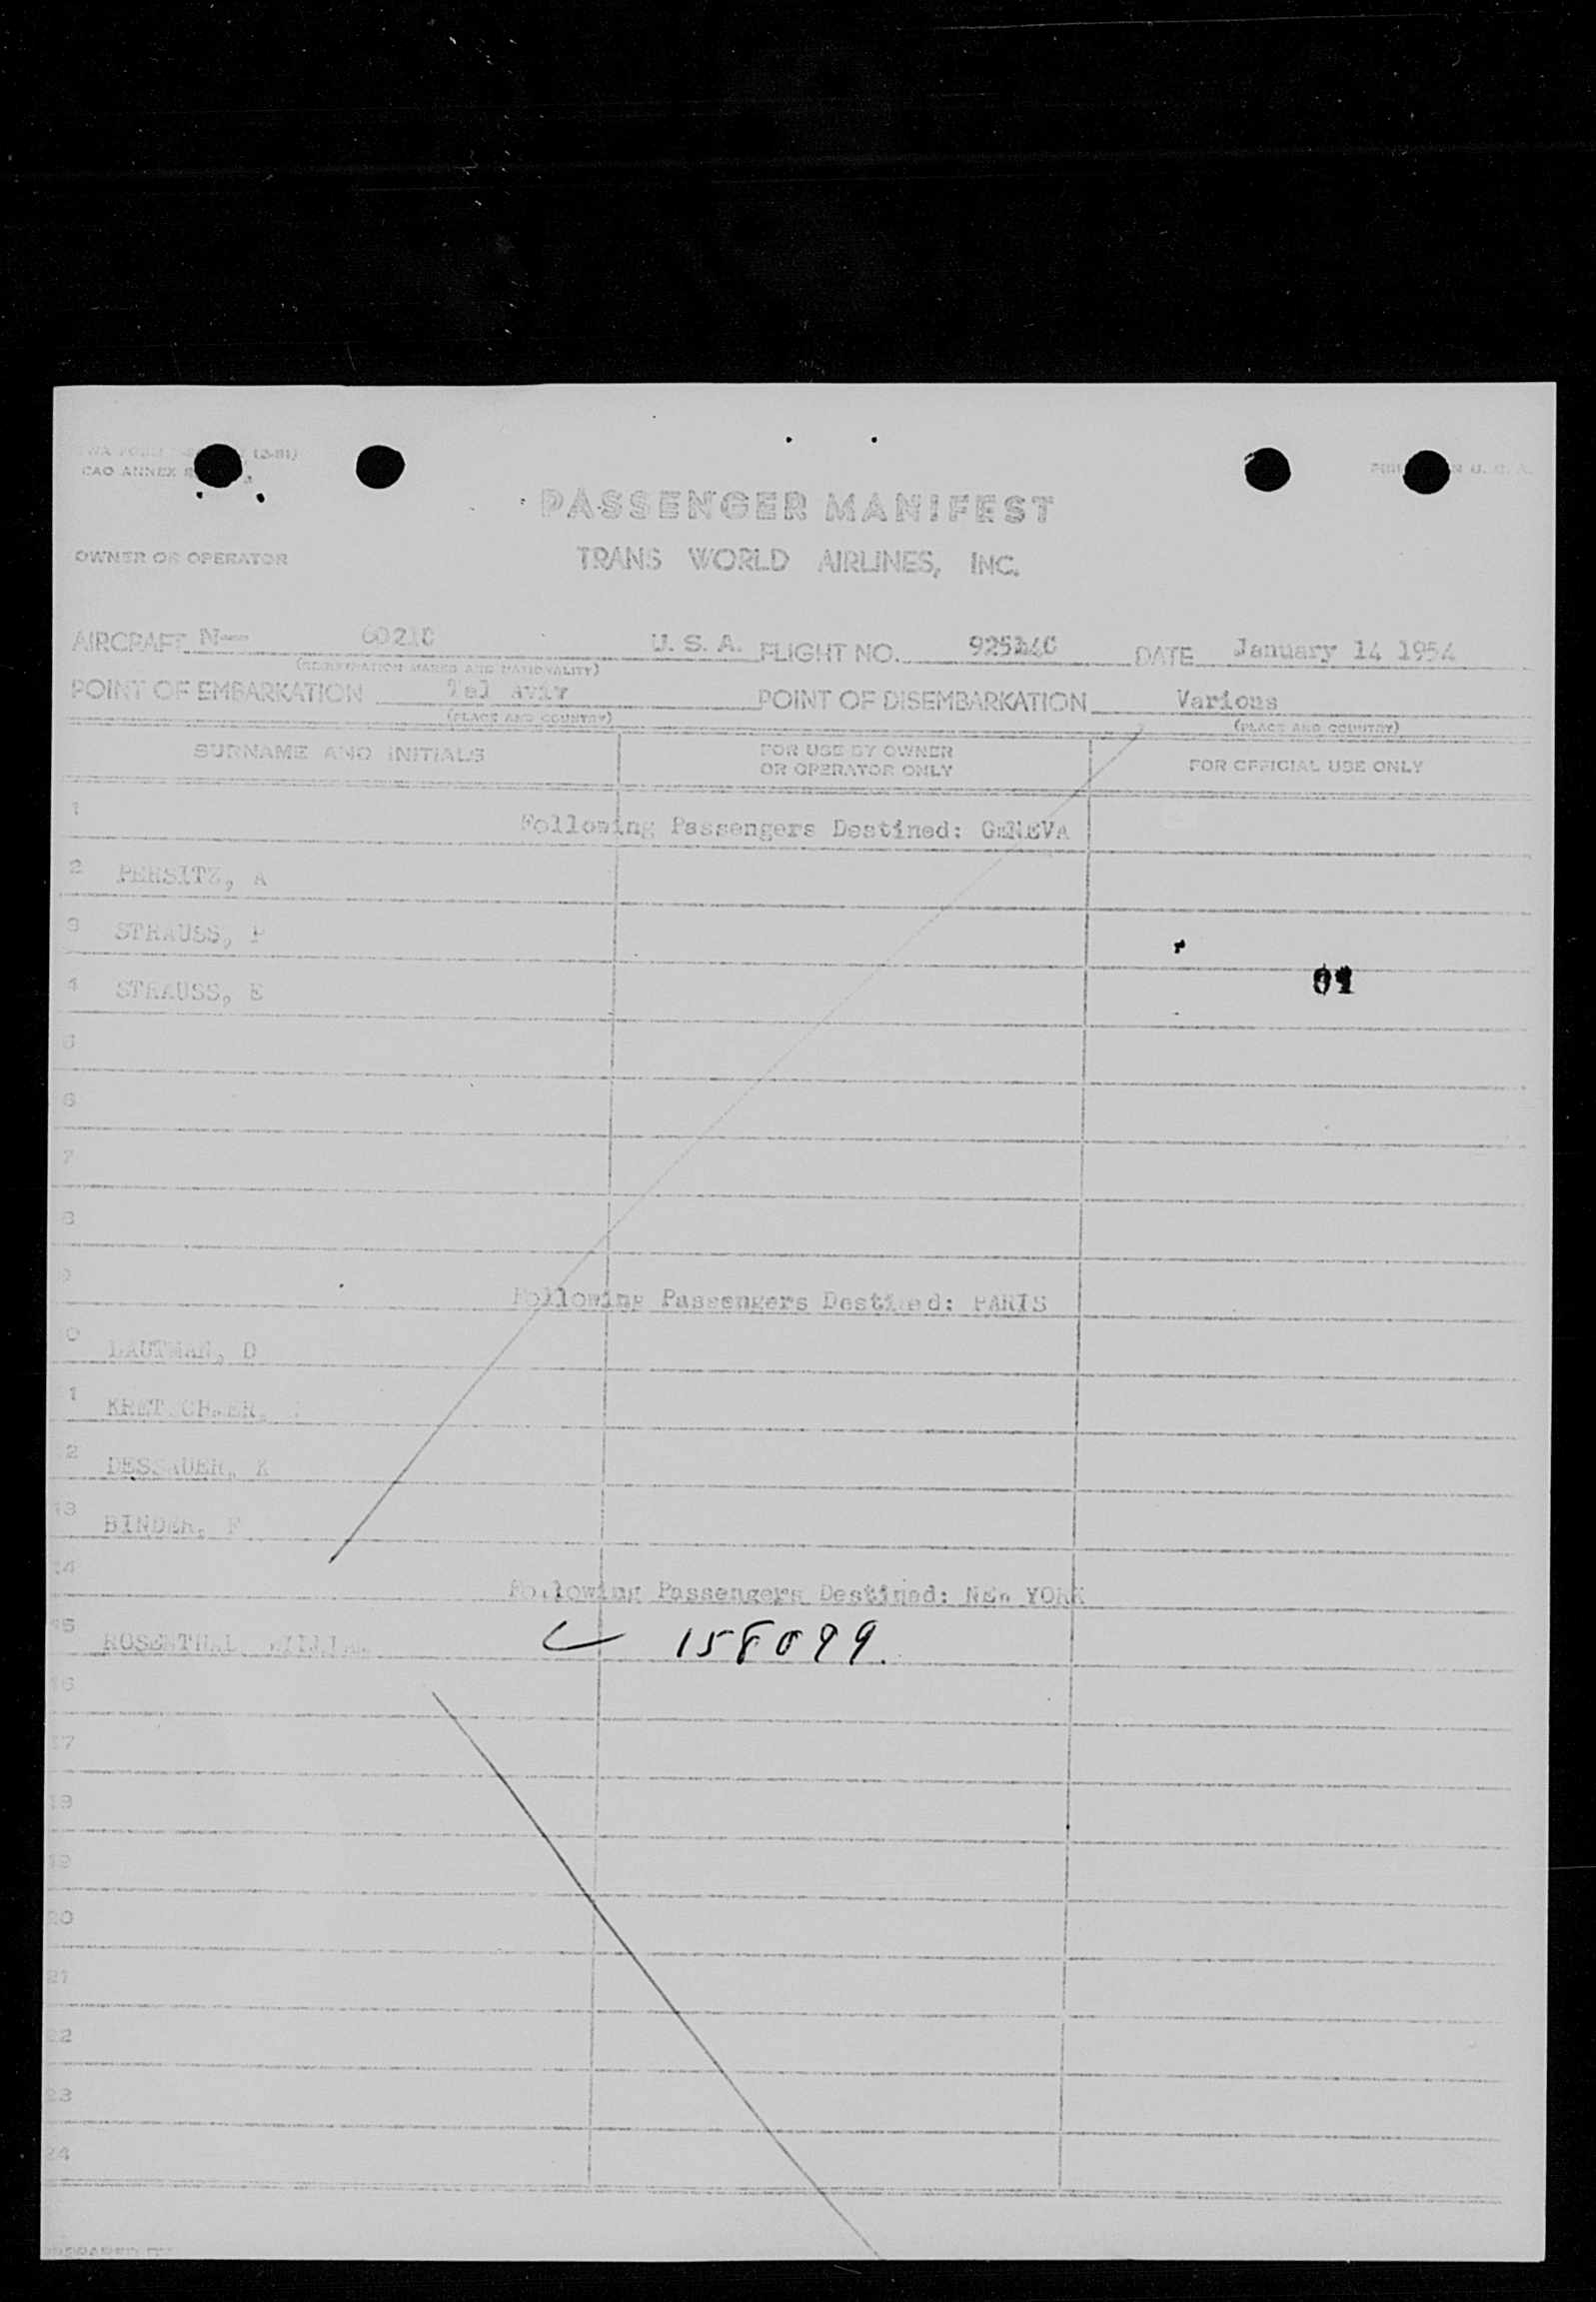 CAO ANNEX
PASSENGER MANIFEST
OWNER OR OPERATOR TRANS WORLD AIRLINES, INC.
AIRCRAFT N-- U. S. A. FLIGHT NO. DATE January 14 1954
(REGISTRATION MARKS AND NATIONALITY)
POINT OF EMBARKATION Tel Aviv POINT OF DISEMBARKATION Various
(PLACE AND COUNTRY) (PLACE AND COUNTRY)
SURNAME AND INITIALS FOR USE BY OWNER OR OPERATOR ONLY FOR OFFICIAL USE ONLY
1 Following Passengers Destined: GENEVA
2 PERSITZ, A
3 STRAUSS, P
4 STRAUSS, E
5
6
7
8
9 Following Passengers Destined: PARIS
0 LAUTMAN, D
1
2 DESSAUER, K
13 BINDER, F
14 Following Passengers Destined: NEW YORK
15 ROSENTHAL WILLIAM 158099.
16
17
18
19
20
21
22
23
24
PREPARED BY